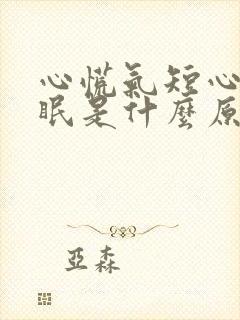 心慌氣短心
眠是什麼原
亞森